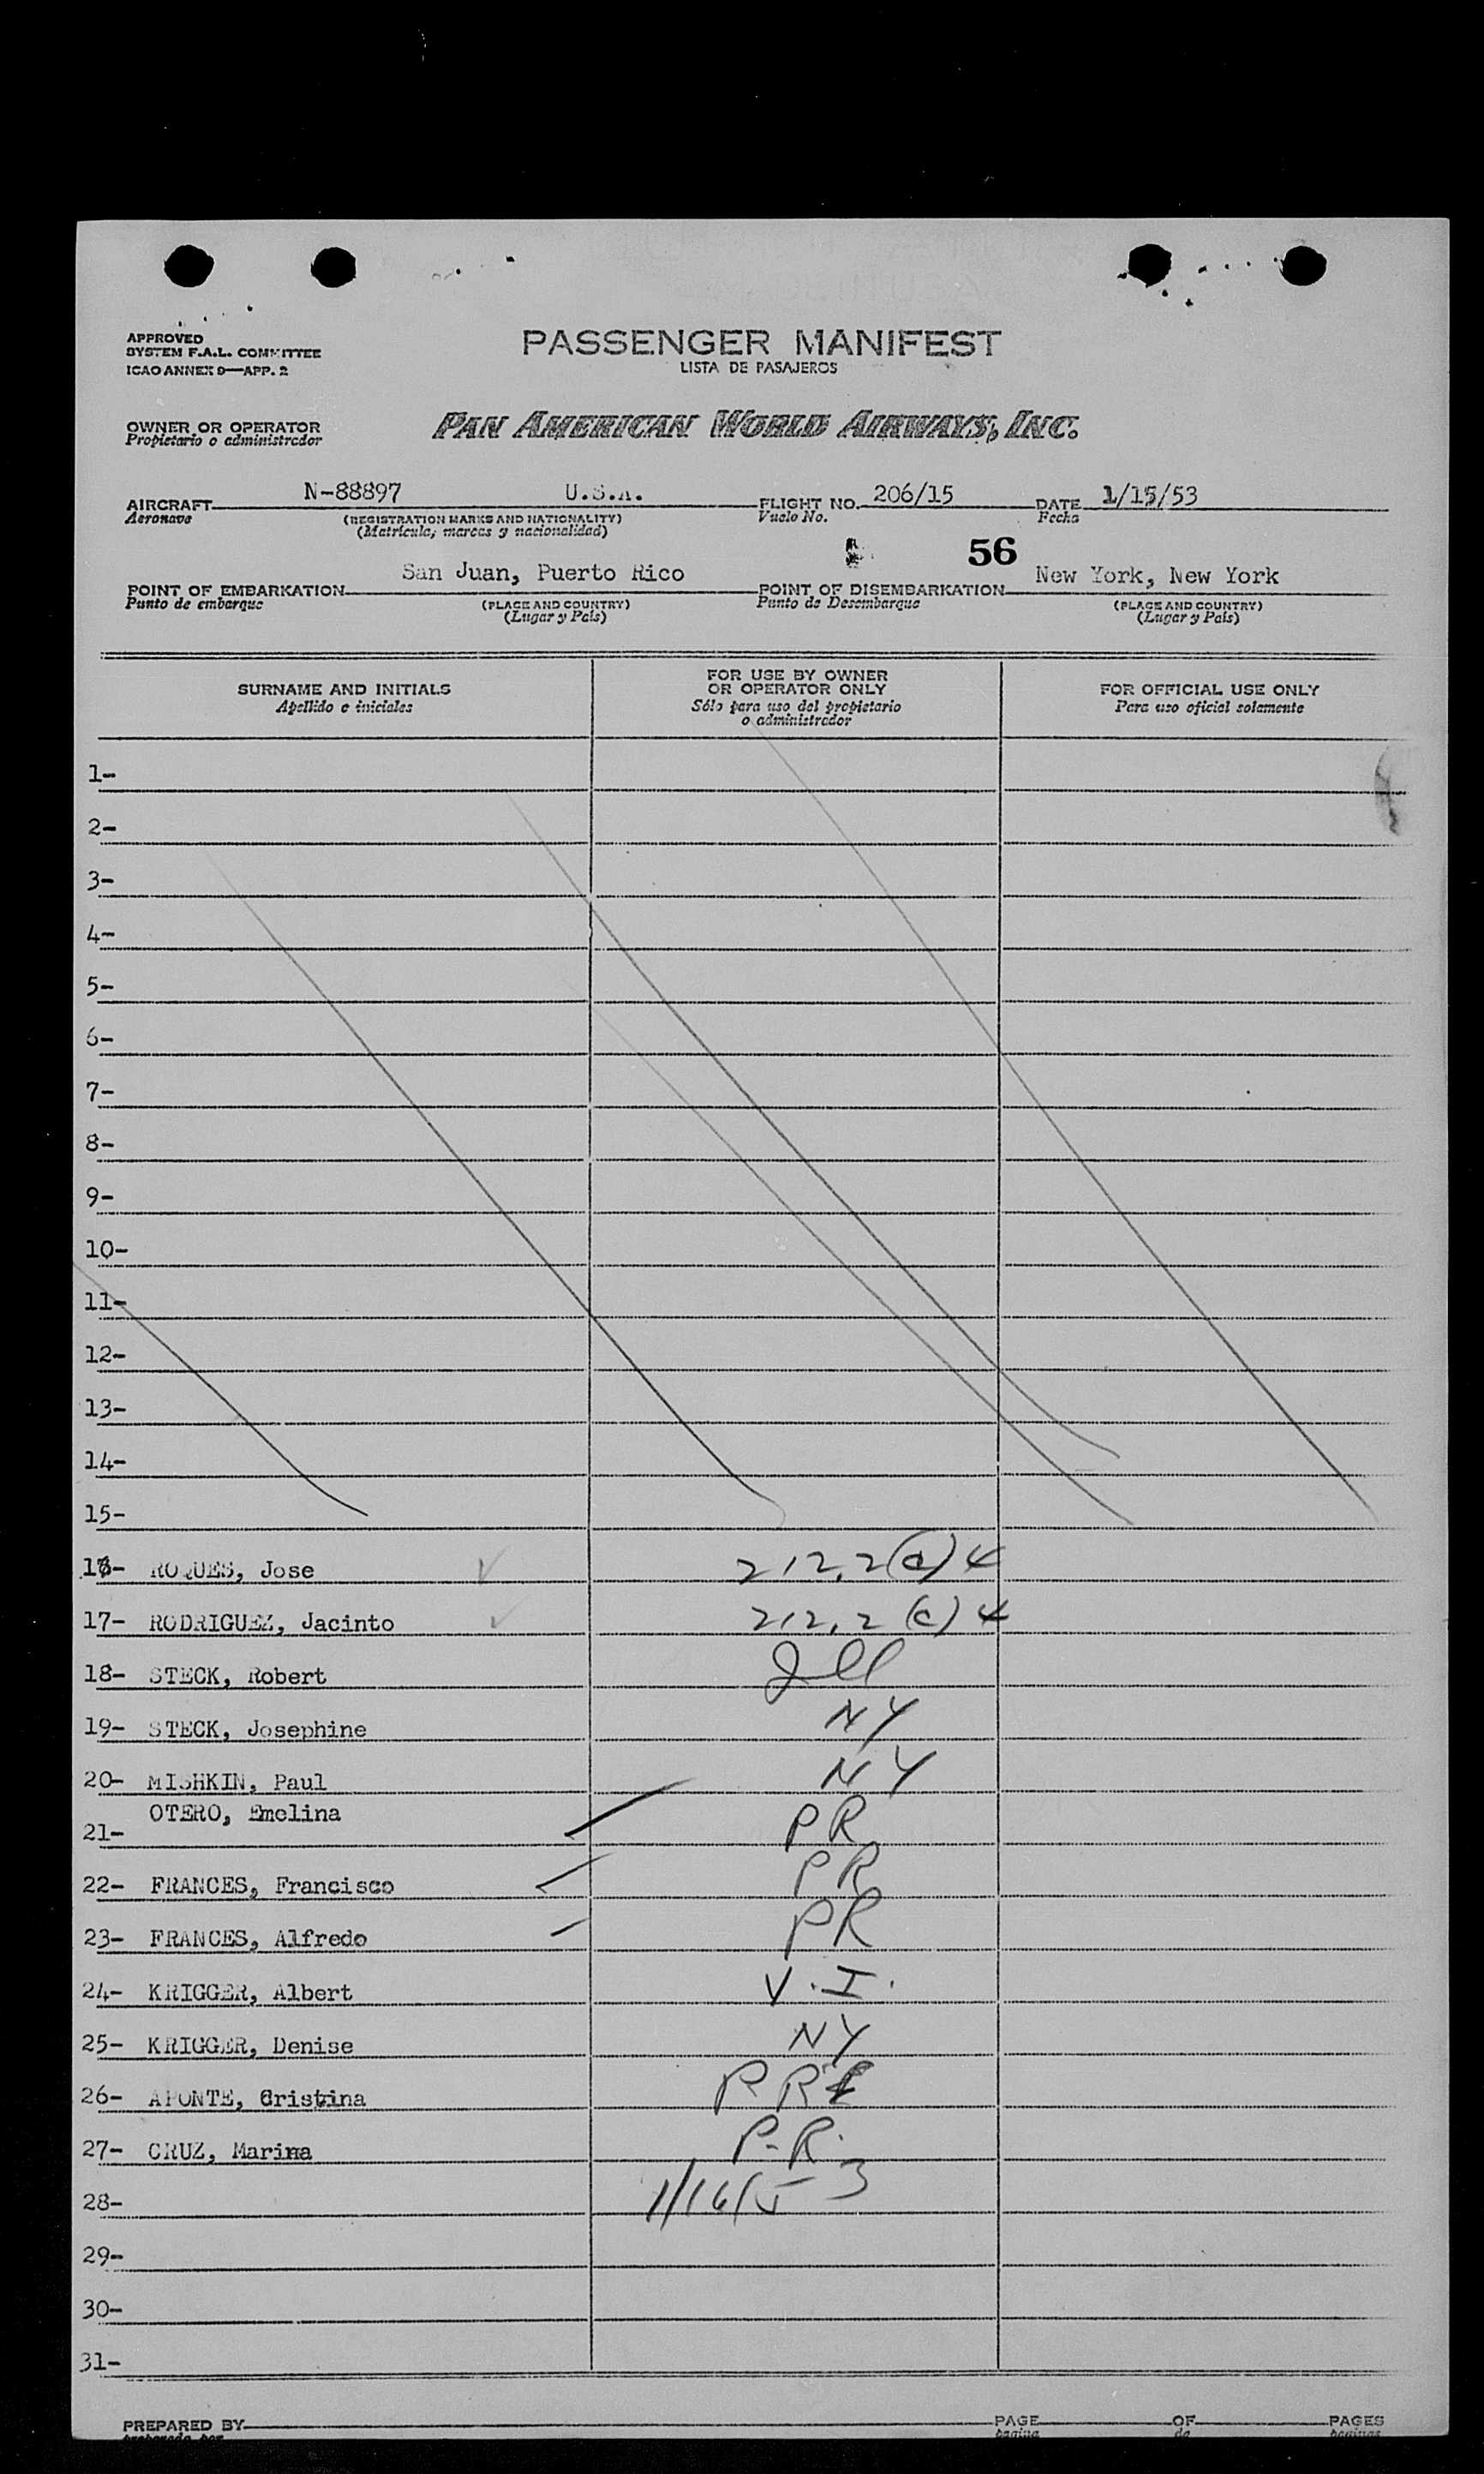 APPROVED
SYSTEM F.A.L. COMMITTEE
ICAO ANNEX 9—APP. 2
PASSENGER MANIFEST
LISTA DE PASAJEROS
OWNER OR OPERATOR
Propietario o administrador
PAN AMERICAN WORLD AIRWAYS, INC.
AIRCRAFT N-88897 U.S.A. FLIGHT NO. 206/15 DATE 1/15/53
Aeronave (REGISTRATION MARKS AND NATIONALITY) Vuelo No. Fecha
(Matrícula, marcas y nacionalidad)
56
POINT OF EMBARKATION San Juan, Puerto Rico POINT OF DISEMBARKATION New York, New York
Punto de embarque (PLACE AND COUNTRY) Punto de Desembarque (PLACE AND COUNTRY)
(Lugar y País) (Lugar y País)
SURNAME AND INITIALS FOR USE BY OWNER OR OPERATOR ONLY FOR OFFICIAL USE ONLY
Apellido e iniciales Sólo para uso del propietario o administrador Para uso oficial solamente
1-
2-
3-
4-
5-
6-
7-
8-
9-
10-
11-
12-
13-
14-
15-
16- ROQUES, Jose 212.2(c)4
17- RODRIGUEZ, Jacinto 212.2(c)4
18- STECK, Robert Ill
19- STECK, Josephine NY
20- MISHKIN, Paul NY
21- OTERO, Emelina PR
22- FRANCES, Francisco PR
23- FRANCES, Alfredo PR
24- KRIGGER, Albert V.I.
25- KRIGGER, Denise NY
26- APONTE, Cristina PR
27- CRUZ, Marina P.R.
28- 1/16/53
29-
30-
31-
PREPARED BY PAGE OF PAGES
preparado por pagina de paginas